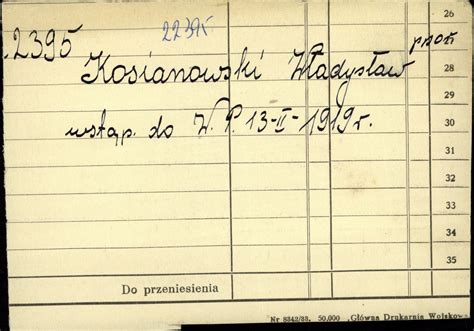 26
22395
2395
Kosianowski Władysław
28
29
wstąp. do W. P. 13-II-1919r.
30
31
32
33
34
35
Do przeniesienia
Nr 8342/33. 50.000 „Główna Drukarnia Wojskowa